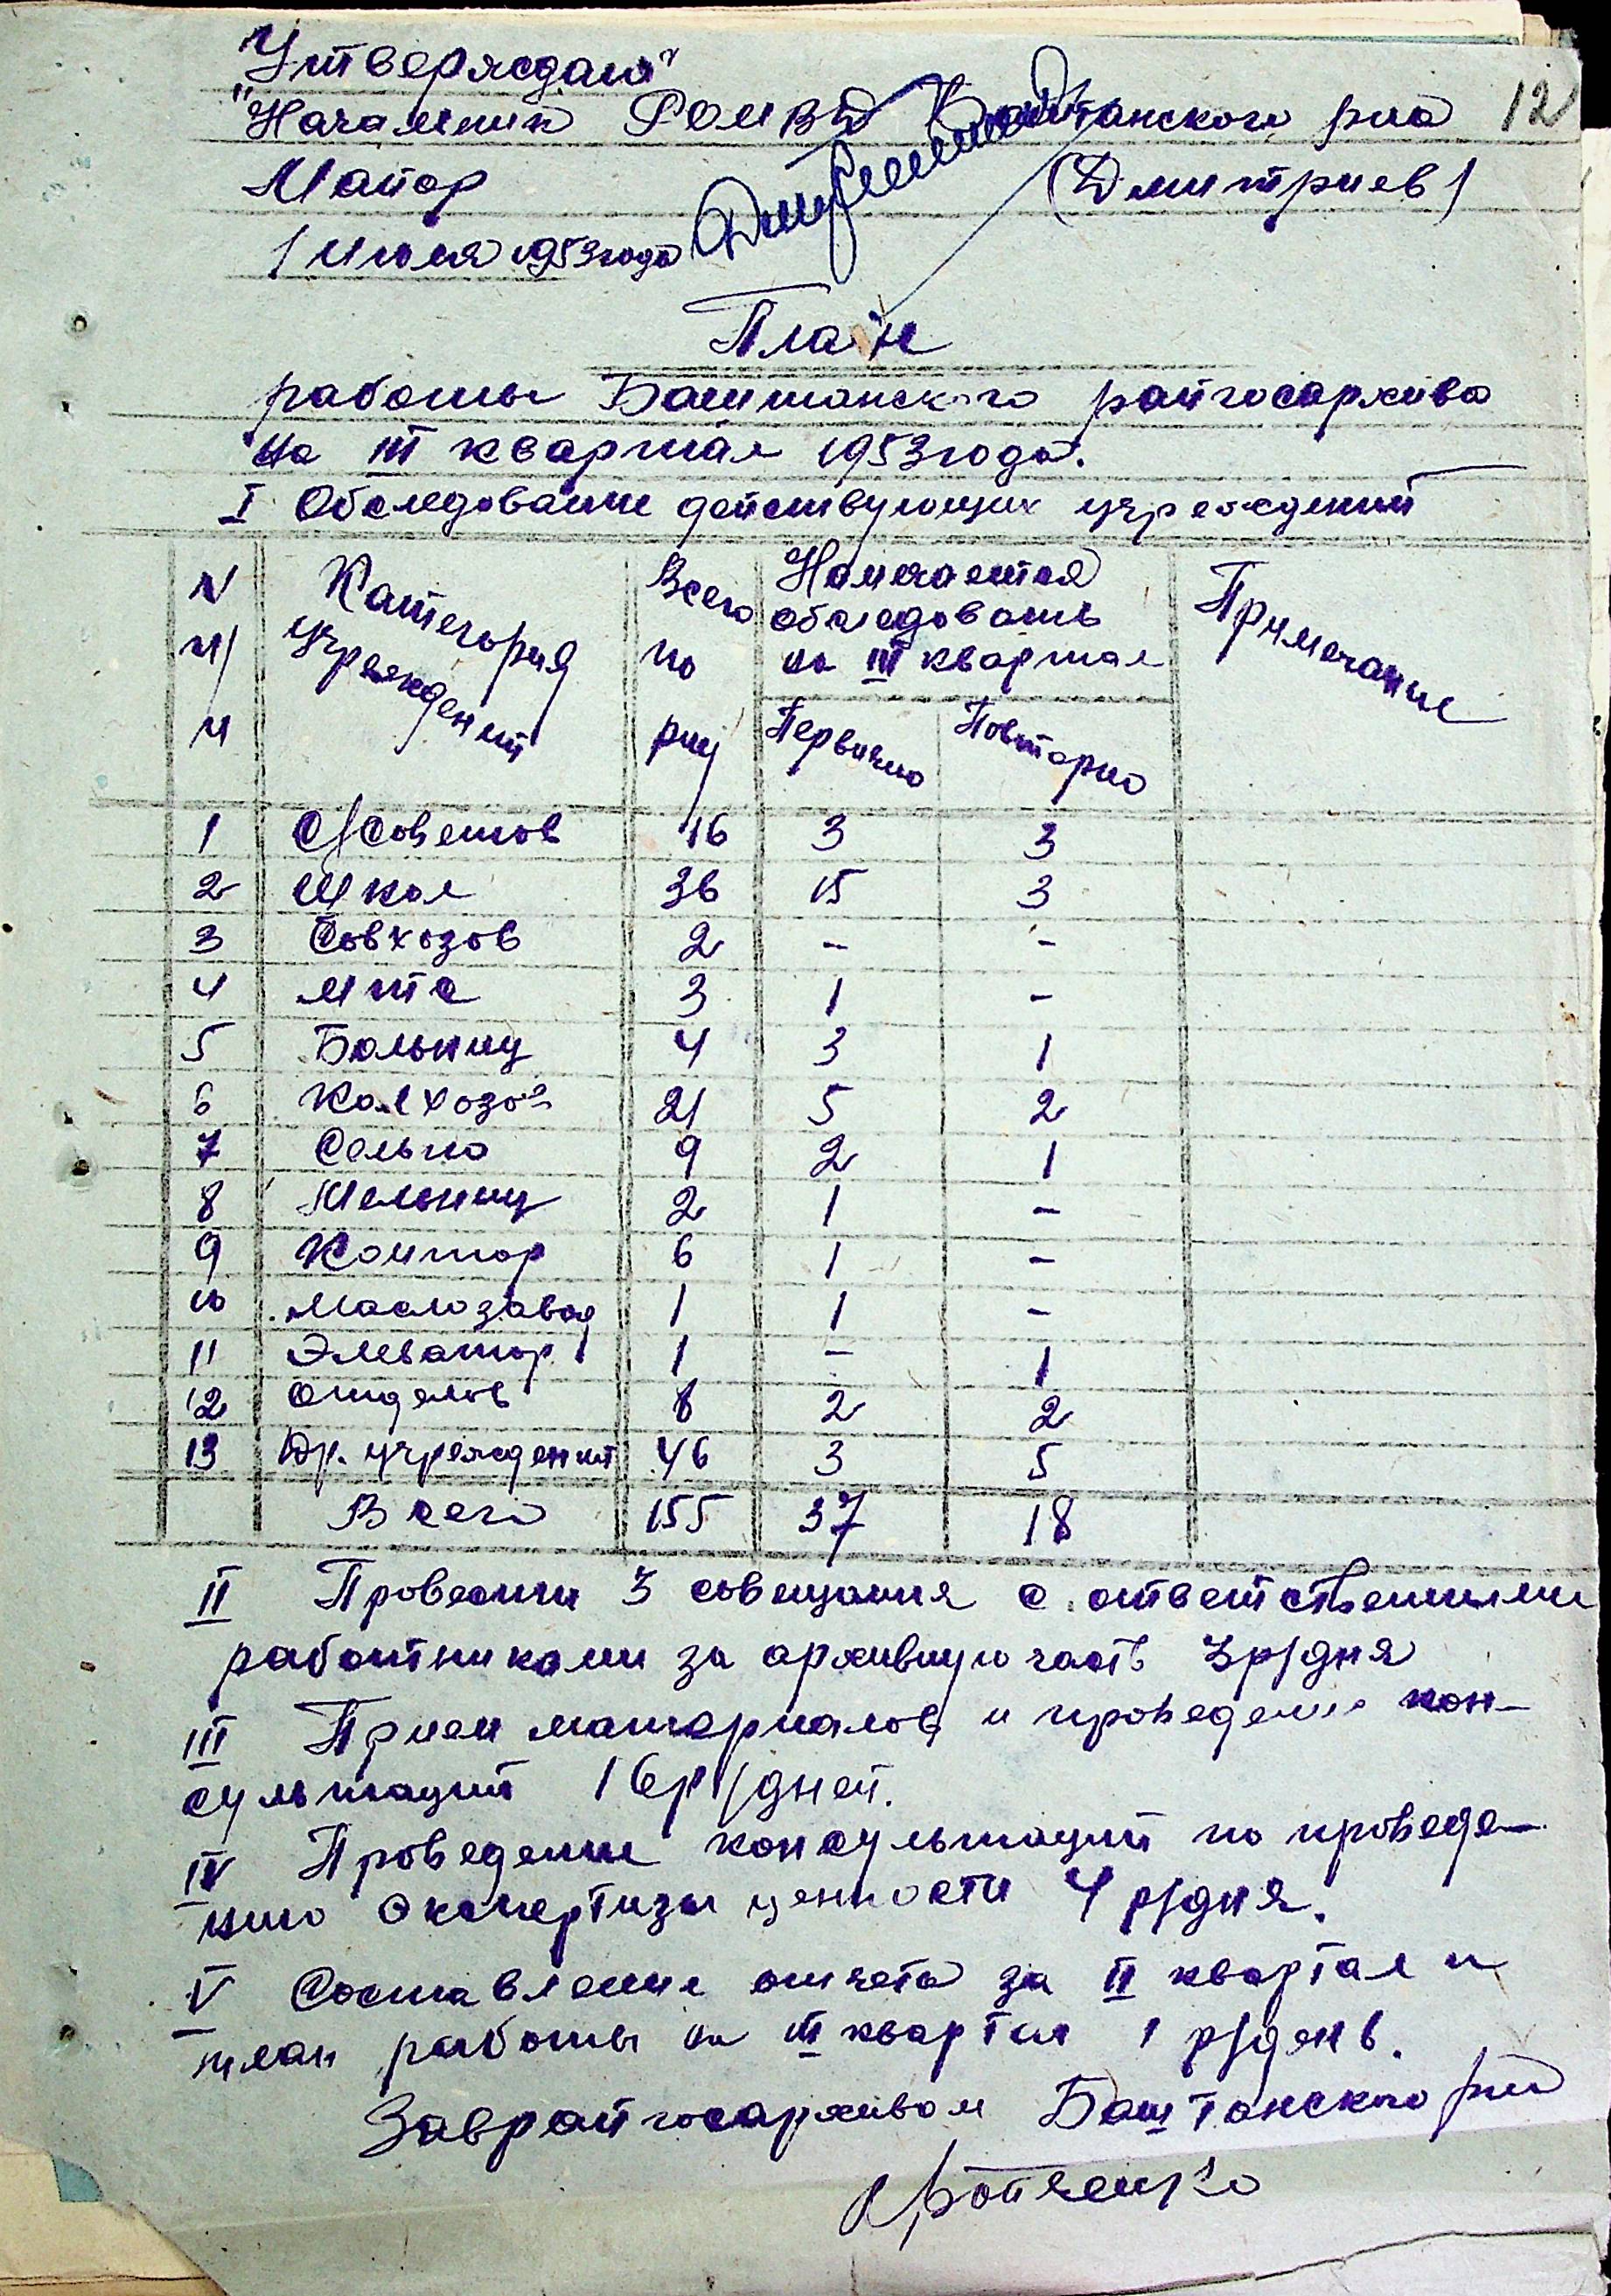 "Утверждаю"
"Начальник РОМВД Баштанского р-на 12
Майор (Дмитриев)
1 Июля 1953 года
План
работы Баштанского райгосархива
на III квартал 1953 года.
I Обследование действующих учреждений
N п/п Категория учреждений Всего по р-ну Намечается обследовать на III квартал Примечание
Первично Повторно
1 С/Советов 16 3 3
2 Школ 36 15 3
3 Совхозов 2 – –
4 МТС 3 1 –
5 Больниц 4 3 1
6 Колхозов 21 5 2
7 Сельпо 9 2 1
8 Мельниц 2 1 –
9 Контор 6 1 –
10 Маслозавод 1 1 –
11 Элеватор 1 – 1
12 Отделов 8 2 2
13 Др. учреждений 46 3 5
Всего 155 37 18
II Провести 3 совещания с ответственными
работниками за архивную часть 3 р/дня
III Прием материалов и проведение кон-
сультаций 16 р/дней.
IV Проведение консультаций по проведе-
нию экспертизы ценности 4 р/дня.
V Составление отчета за II квартал и
план работы на III квартал 1 р/день.
Заврайгосархивом Баштанского р-на